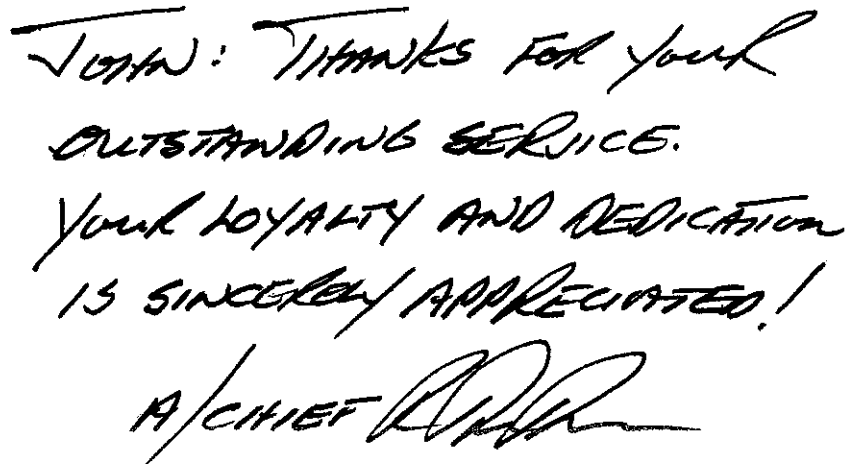 JOHN: THANKS FOR YOUR
OUTSTANDING SERVICE.
YOUR LOYALTY AND DEDICATION
IS SINCERELY APPRECIATED!
A/CHIEF